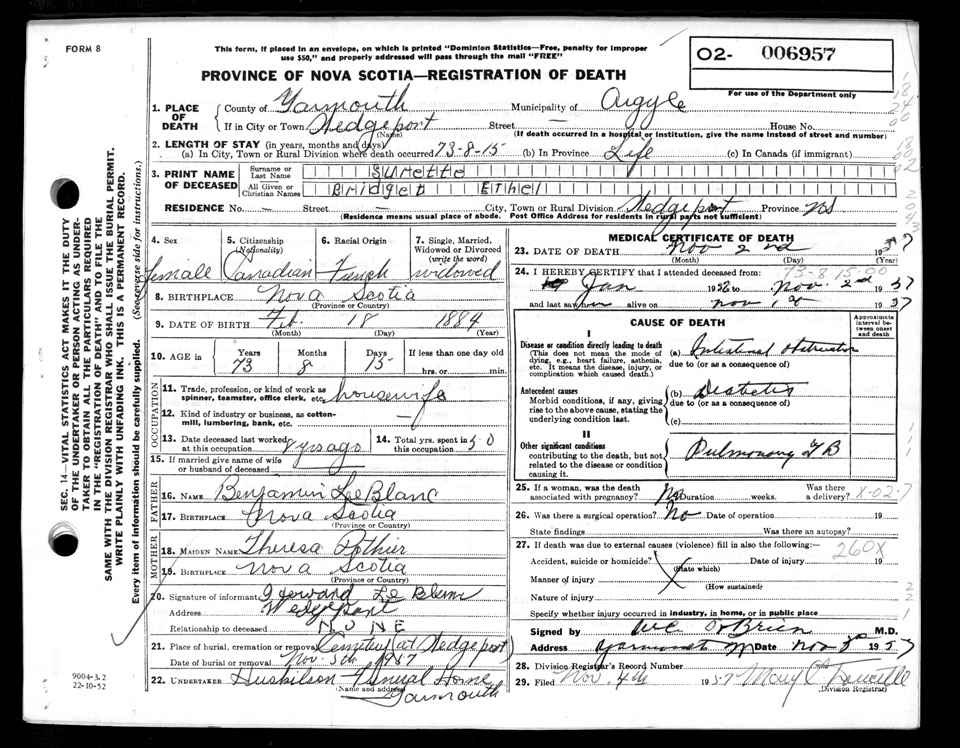 FORM 8
This form, if placed in an envelope, on which is printed "Dominion Statistics—Free, penalty for improper
use $50," and properly addressed will pass through the mail "FREE"
PROVINCE OF NOVA SCOTIA—REGISTRATION OF DEATH
02- 006957
For use of the Department only
1. PLACE OF DEATH
County of Yarmouth Municipality of Argyle
If in City or Town Wedgeport Street — House No.
(Name) (If death occurred in a hospital or institution, give the name instead of street and number)
2. LENGTH OF STAY (in years, months and days)
(a) In City, Town or Rural Division where death occurred 73-8-15 (b) In Province Life (c) In Canada (if immigrant)
3. PRINT NAME OF DECEASED
Surname or Last Name Surette
All Given or Christian Names Bridget Ethel
RESIDENCE No. — Street — City, Town or Rural Division Wedgeport Province NS
(Residence means usual place of abode. Post Office Address for residents in rural parts not sufficient)
4. Sex female
5. Citizenship (Nationality) Canadian
6. Racial Origin French
7. Single, Married, Widowed or Divorced (write the word) widowed
8. BIRTHPLACE Nova Scotia
(Province or Country)
9. DATE OF BIRTH Feb. 18 1884
(Month) (Day) (Year)
10. AGE in Years 73 Months 8 Days 15 If less than one day old
hrs. or min.
OCCUPATION
11. Trade, profession, or kind of work as spinner, teamster, office clerk, etc. housewife
12. Kind of industry or business, as cotton-mill, lumbering, bank, etc. —
13. Date deceased last worked at this occupation 8 yrs ago
14. Total yrs. spent in this occupation 50
15. If married give name of wife or husband of deceased
FATHER
16. NAME Benjamin LeBlanc
17. BIRTHPLACE Nova Scotia
(Province or Country)
MOTHER
18. MAIDEN NAME Theresa Pothier
19. BIRTHPLACE Nova Scotia
(Province or Country)
20. Signature of informant Le Blanc
Address Wedgeport
Relationship to deceased NONE
21. Place of burial, cremation or removal Cemetery (at Wedgeport)
Date of burial or removal Nov. 5th 1957
22. UNDERTAKER Huskilson Funeral Home
(Name and address) Yarmouth
MEDICAL CERTIFICATE OF DEATH
23. DATE OF DEATH Nov 2nd 1957
(Month) (Day) (Year)
73-8 15-00
24. I HEREBY CERTIFY that I attended deceased from:
Jan 1956 to Nov. 2nd 1957
and last saw her alive on Nov. 1957
CAUSE OF DEATH
Approximate interval between onset and death
I
Disease or condition directly leading to death
(This does not mean the mode of dying, e.g., heart failure, asthenia, etc. It means the disease, injury, or complication which caused death.)
(a) Intestinal obstruction
due to (or as a consequence of)
Antecedent causes
Morbid conditions, if any, giving rise to the above cause, stating the underlying condition last.
(b) Diabetes
due to (or as a consequence of)
(c)
II
Other significant conditions
contributing to the death, but not related to the disease or condition causing it.
Pulmonary TB
25. If a woman, was the death associated with pregnancy? No Duration weeks. Was there a delivery?
X-02-7
26. Was there a surgical operation? No Date of operation 19
State findings Was there an autopsy?
27. If death was due to external causes (violence) fill in also the following:—
260X
Accident, suicide or homicide? Date of injury 19
(State which)
Manner of injury
(How sustained)
Nature of injury
Specify whether injury occurred in industry, in home, or in public place
Signed by WC O'Brien M.D.
Address Yarmouth Date Nov 1957
28. Division Registrar's Record Number
29. Filed Nov. 4th 1957 Mary
(Division Registrar)
SEC. 14—VITAL STATISTICS ACT MAKES IT THE DUTY
OF THE UNDERTAKER OR PERSON ACTING AS UNDER-
TAKER TO OBTAIN ALL THE PARTICULARS REQUIRED
IN THE "REGISTRATION OF DEATH" AND TO FILE THE
SAME WITH THE DIVISION REGISTRAR WHO SHALL ISSUE THE BURIAL PERMIT.
WRITE PLAINLY WITH UNFADING INK. THIS IS A PERMANENT RECORD.
Every item of information should be carefully supplied. (See reverse side for instructions.)
9004-3.2
22-10-52